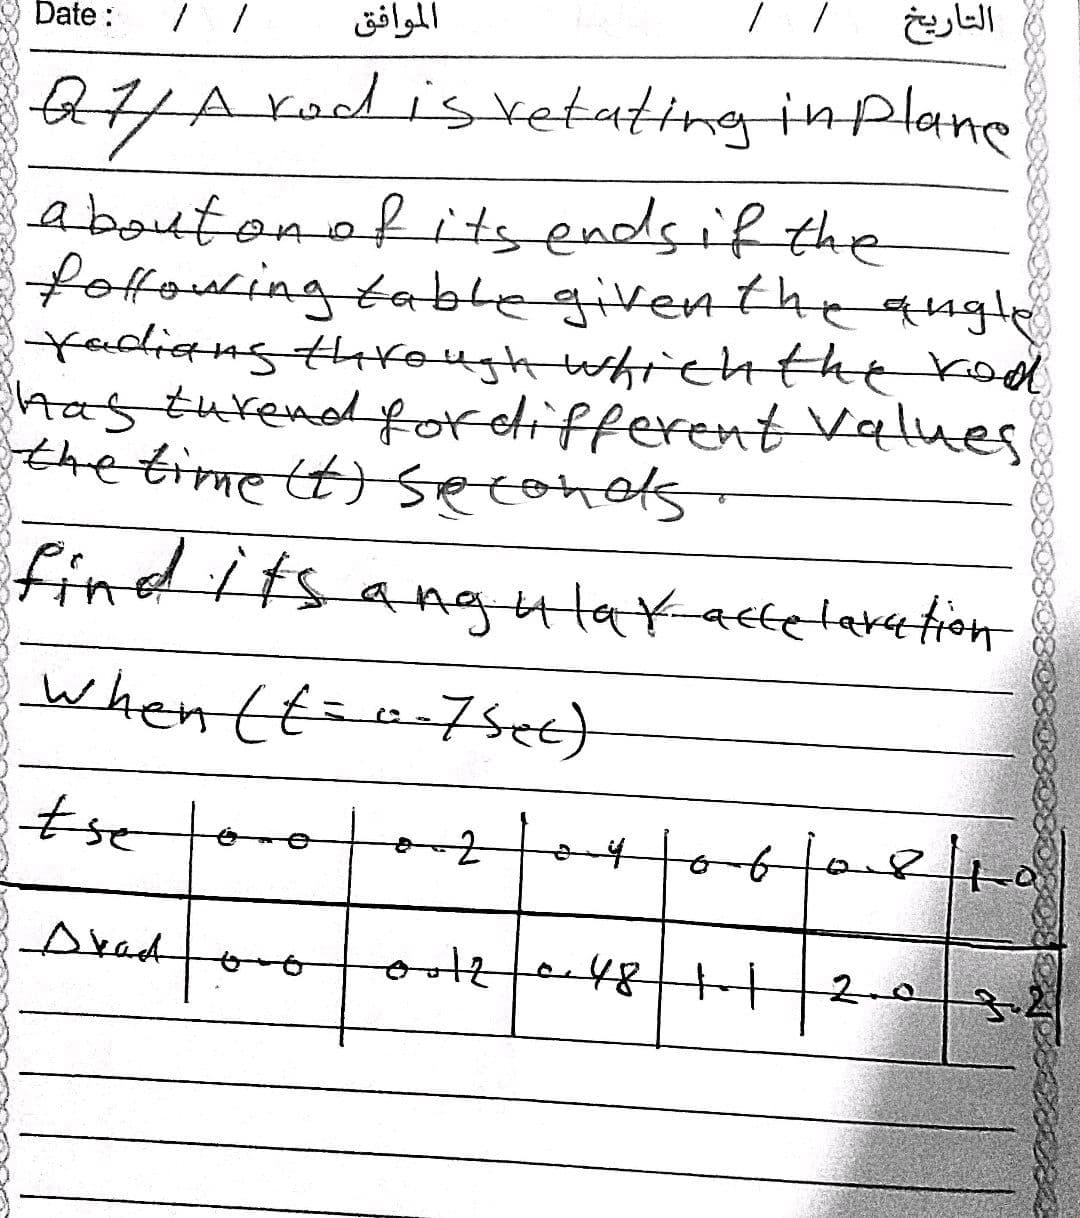 Date : / / الموافق / / التاريخ
Q1/ A rod is retating in plane
about on of its ends if the
following table given the angle
radians through which the rod
has turend for different values
the time (t) seconds.
find its angular accelaration
when (t = 0.7 sec)
t se 0.0 0.2 0.4 0.6 0.8 1.0
Δ rad 0.0 0.12 0.48 1.1 2.0 3.2